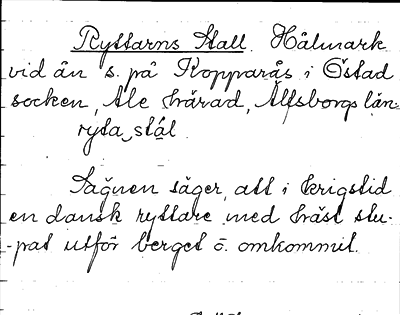 Ryttarns Stall. Hålmark
vid ån s. på Kopparås i Östad
socken, Ale härad, Älfsborgs län.
rýta stál
Sägnen säger, att i krigstid
en dansk ryttare med häst stu-
-pat utför berget o. omkommit.